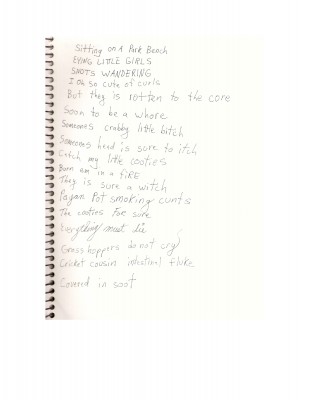 Sitting on A Park Bench
EYING LITTLE GIRLS
SNOTS WANDERING
I oh so cute of curls
But they is rotten to the core
Soon to be a whore
Someones crabby little bitch
Someones head is sure to itch
Catch my little cooties
Burn em in a fiRE
They is sure a witch
Pagan Pot smoking cunts
The cooties For sure
Everything must die
Grasshoppers do not cry
Cricket cousin intestinal fluke
Covered in soot